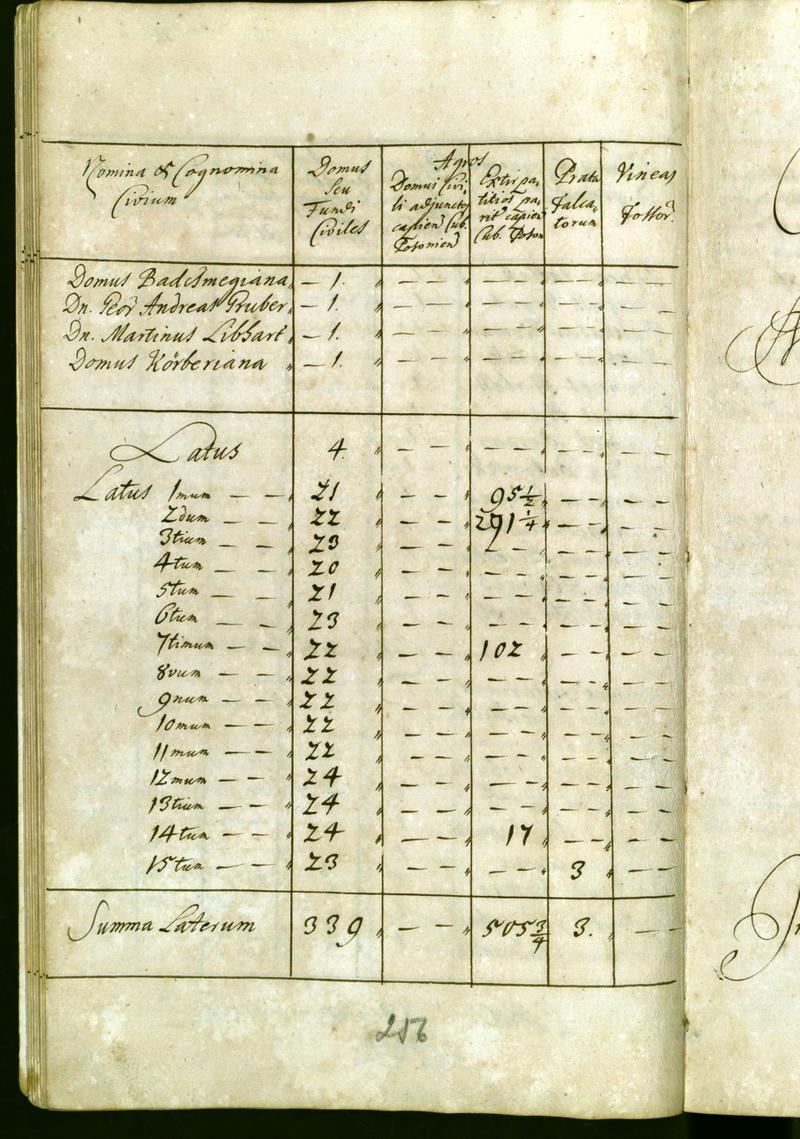 Nomina & Cognomina
Civium
Domus
Seu
Fundi
Civiles
Agros
Domui Civi,
li adjunctos
capien Cub.
Posonien
Extirpa,
titios pa,
rit capien
Cub. Poson
Prata
Falca,
torum
Vineas
Fossor.
Domus Bacsmegiana — 1. — — — — — — — —
Dn. Andreas Gruber — 1. — — — — — — — —
Dn. Martinus Libhart — 1. — — — — — — — —
Domus Körberiana — 1. — — — — — — — —
Latus 4. — — — — — — — —
Latus 1mum — — 21 — — 95 1/2 — — — —
2dum — — 22 — — 291 1/4 — — — —
3tium — — 23 — — — — — — — —
4tum — — 20 — — — — — — — —
5tum — — 21 — — — — — — — —
6tum — — 23 — — — — — — — —
7timum — — 22 — — 102 — — — —
8vum — — 22 — — — — — — — —
9num — — 22 — — — — — — — —
10mum — — 22 — — — — — — — —
11mum — — 22 — — — — — — — —
12mum — — 24 — — — — — — — —
13tium — — 24 — — — — — — — —
14tum — — 24 — — 17 — — — —
15tum — — 23 — — — — 3 — —
Summa Laterum 339 — — 505 3/4 3. — —
256